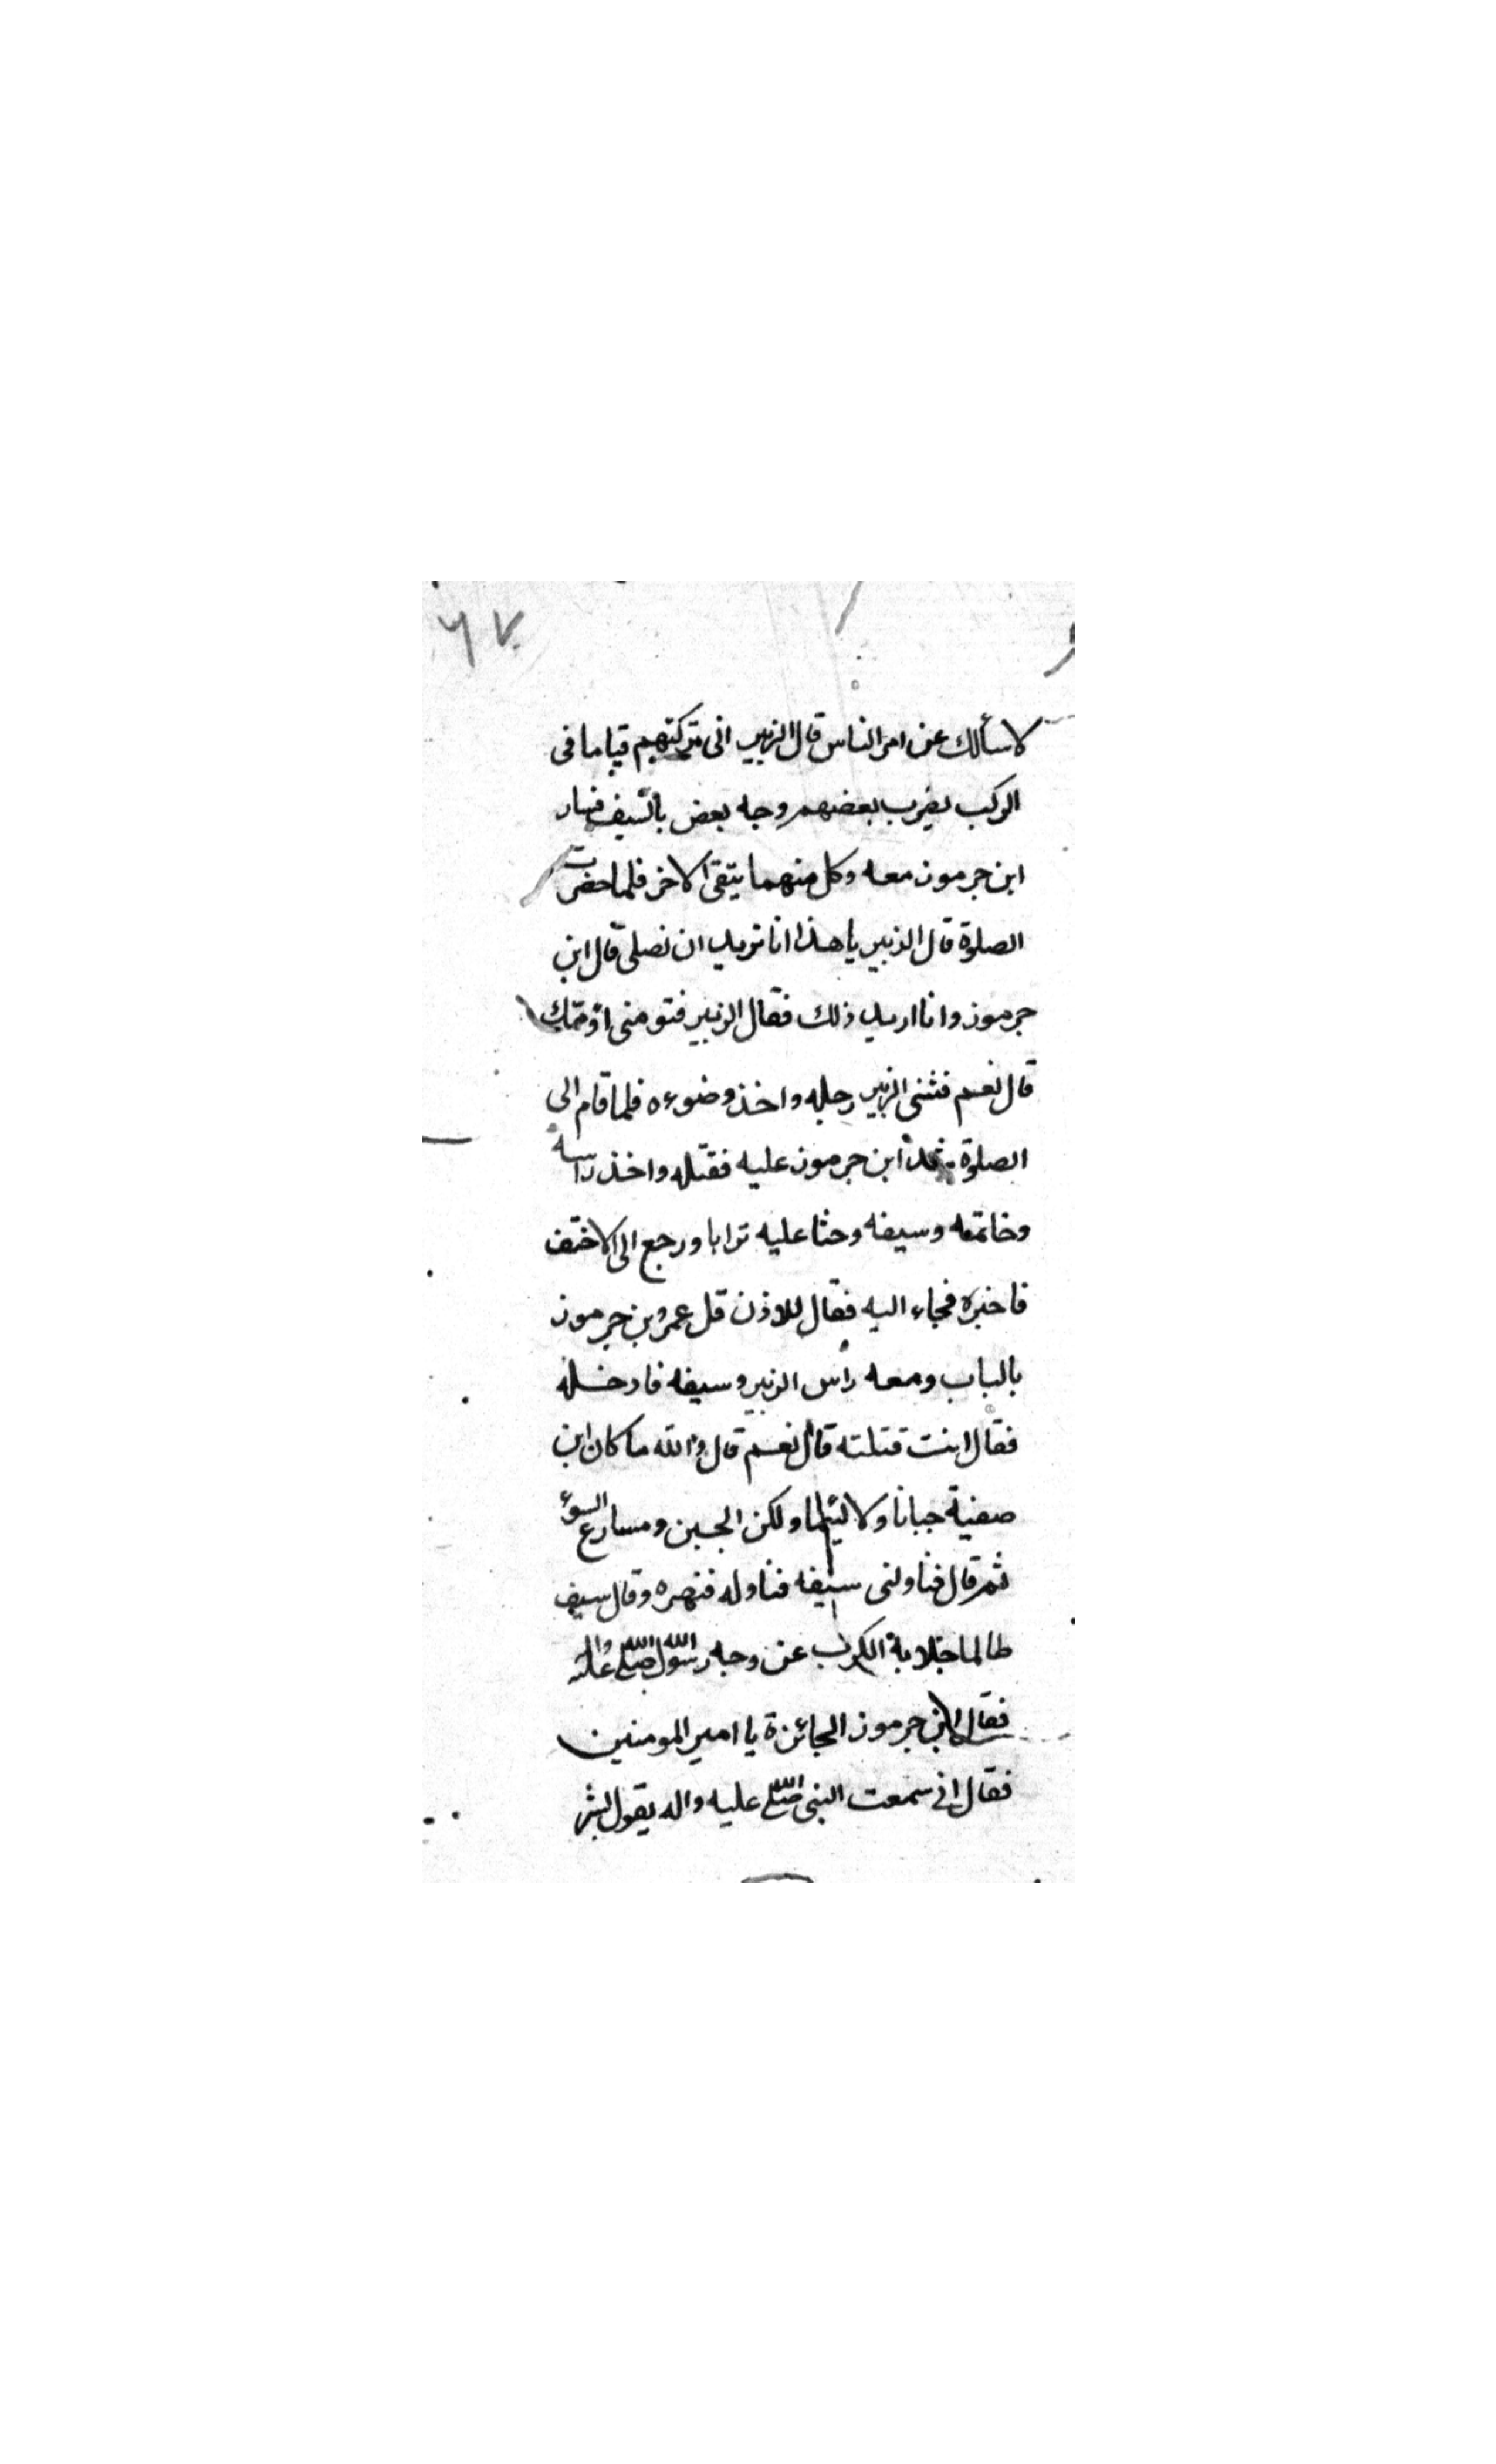 ٦٧
لاسألك عن امر الناس قال الزبير انى تركتهم قياما فى
الركب يضرب بعضهم وجه بعض بالسيف فسار
ابن جرموز معه وكل منهما يتقى الاخر فلما حضرت
الصلوة قال الزبير يا هذا انا نريد ان نصلى قال ابن
جرموز وانا اريد ذلك فقال الزبير فتومنى اؤمنك
قال نعم فثنى الزبير رجله واخذ وضوءه فلما قام الى
الصلوة شد ابن جرموز عليه فقتله واخذ راسه
وخاتمه وسيفه وحثا عليه ترابا ورجع الى الاحنف
فاخبره فجاء اليه فقال للاذن قل عمرو بن جرموز
بالباب ومعه راس الزبير وسيفه فادخله
فقال انت قتلته قال نعم قال والله ما كان ابن
صفية جبانا ولا لئيما ولكن الحين ومسارع السوء
ثم قال فناولنى سيفه فناوله فنهره وقال سيف
طالما جلا به الكرب عن وجه رسول الله صلى الله عليه واله
فقال ابن جرموز الجائزة يا امير المومنين
فقال انى سمعت النبى صلى الله عليه واله يقول بشر